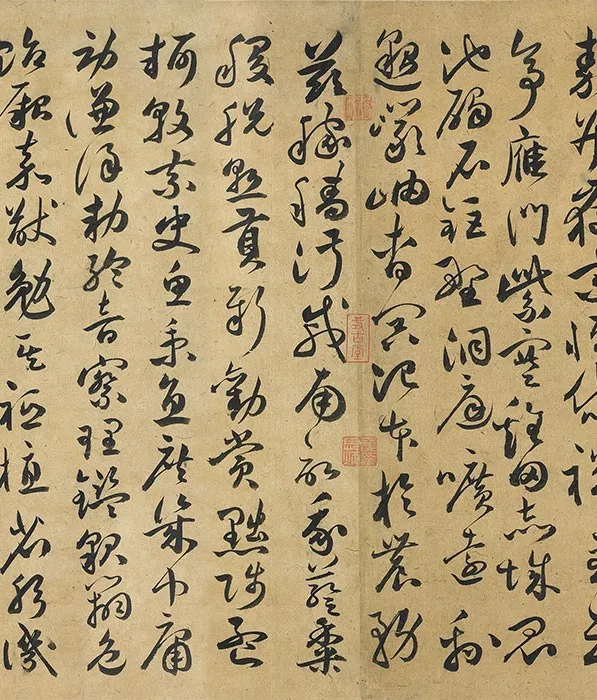 秦并嶽宗恒岱禪主云
亭雁門紫塞雞田赤城昆
池碣石鉅野洞庭曠遠綿
邈巖岫杳冥治本於農務
茲稼穡俶載南畝我藝黍
稷稅熟貢新勸賞黜陟孟
軻敦素史魚秉直庶幾中庸
勞謙謹勅聆音察理鑑貌辨色
貽厥嘉猷勉其祗植省躬譏
式古堂